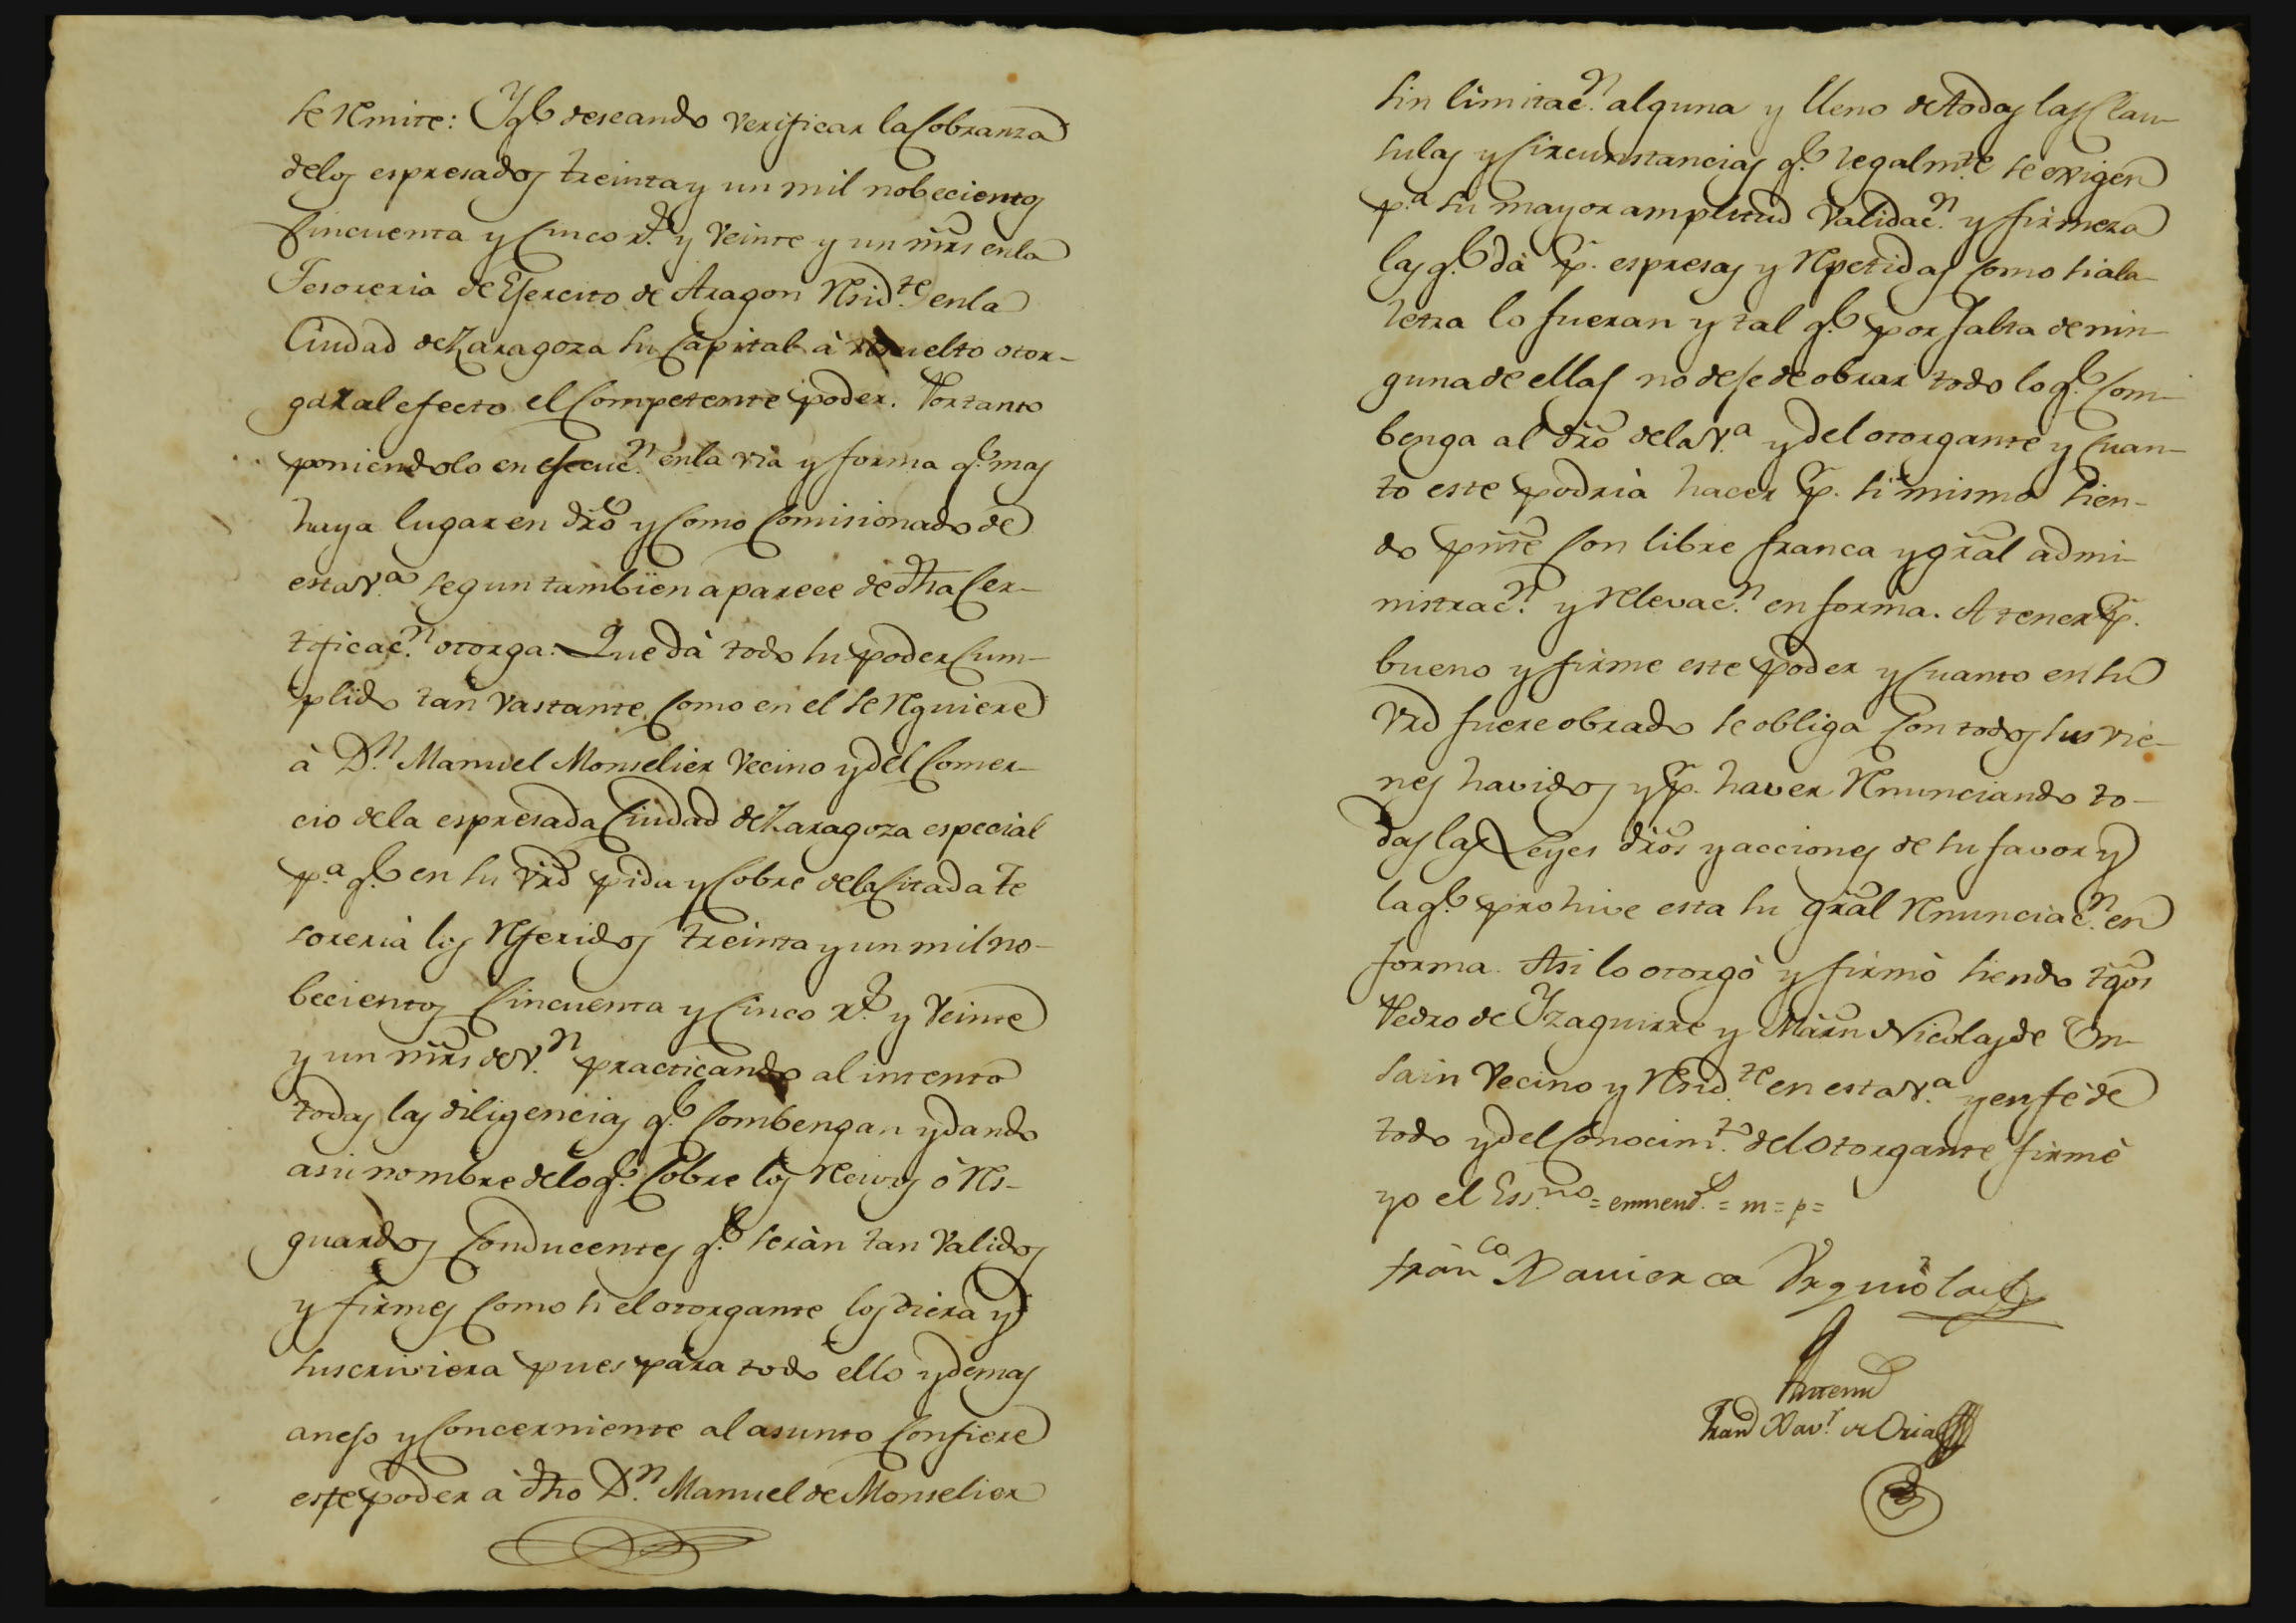 se remite: Y q.e deseando verificar la Cobranza
delos espresados treinta y un mil nobecientos
Cincuenta y Cinco r.s y Veinte y un mrs enla
Tesoreria de Ejercito de Aragon resid.te enla
Ciudad de Zaragoza su Capital à resuelto otor-
gar al efecto el Competente poder. Por tanto
poniendolo en ejecuc.n enla via y forma q.e mas
haya lugar en dro y Como Comisionado de
esta V.a segun tambien aparece de dha Cer-
tificac.n otorga: Que dà todo su poder Cum-
plido tan vastante Como en el se requiere
à D.n Manuel Monselier Vecino y del Comer-
cio dela espresada Ciudad de Zaragoza especial
p.a q.e en su vrd pida y Cobre dela Citada Te
soreria los referidos treinta y un mil no-
becientos Cincuenta y Cinco r.s y Veinte
y un mrs de V.n practicando al intento
todas las diligencias q.e Combengan y dando
asu nombre delo q.e Cobre los recivos ò res-
guardos Conducentes q.e seràn tan Validos
y firmes Como si el otorgante los diera y
suscriviera pues para todo ello y demas
anejo y Concerniente al asunto Confiere
este poder à dho D.n Manuel de Monselier
sin limitac.n alguna y lleno de todas las Clau-
sulas y Circunstancias q.e legalm.te se exigen
p.a su mayor amplitud Validac.n y firmeza
las q.e dà p. espresas y repetidas Como si ala
letra lo fueran y tal q.e por falta de nin-
guna de ellas no deje de obrar todo lo q.e Com-
benga al dro dela V.a y del otorgante y Cuan-
to este podria hacer p. si mismo sien-
do pnte Con libre franca y gral admi-
nistrac.n y relevac.n en forma. A tener p.
bueno y firme este poder y Cuanto en su
vrd fuere obrado se obliga Con todos sus vie-
nes havidos y p. haver renunciando to-
das las Leyes dros y acciones de su favor y
la q.e prohive esta su gral renunciac.n en
forma. Asi lo otorgò y firmò siendo tgos
Pedro de Yzaguirre y Martn Nicolas de Un-
sain Vecino y resid.te en esta V.a y en fè de
todo y del Conocim.to del Otorgante firmè
yo el Ess.no = enmend.o = m = p =
Fran.co Xavier de Urquiola
Antemi
Fran.co Xav.r de Oria